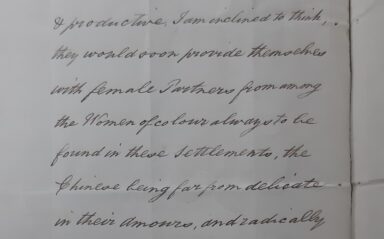 & productive. I am inclined to think,
they would soon provide themselves
with female Partners from among
the Women of colour always to be
found in these Settlements, the
Chinese being far from delicate
in their amours, and radically